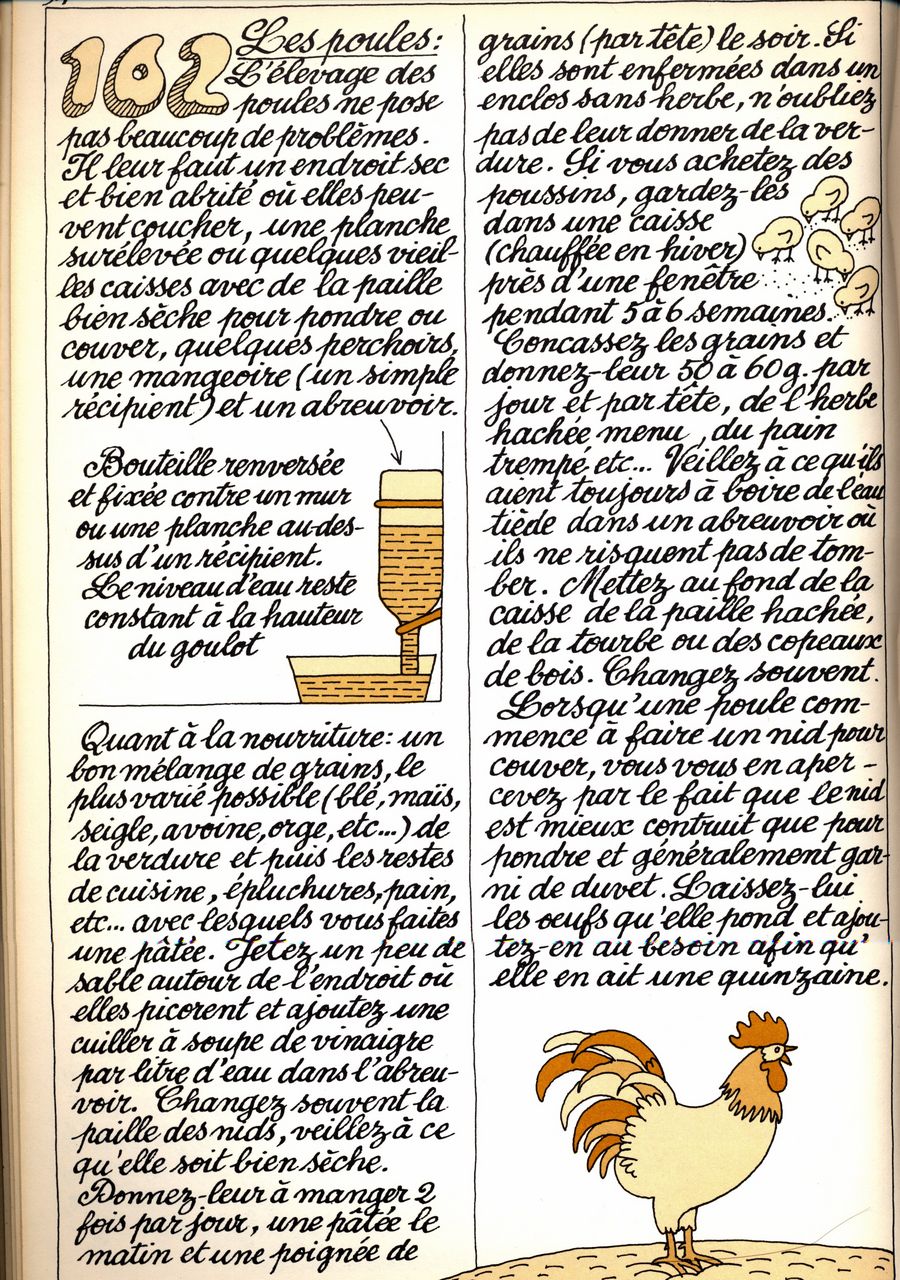 162 Les poules:
L'élevage des
poules ne pose
pas beaucoup de problèmes.
Il leur faut un endroit sec
et bien abrité où elles peu-
vent coucher, une planche
surélevée ou quelques vieil-
les caisses avec de la paille
bien sèche pour pondre ou
couver, quelques perchoirs,
une mangeoire (un simple
récipient) et un abreuvoir.
Bouteille renversée
et fixée contre un mur
ou une planche au-des-
sus d'un récipient.
Le niveau d'eau reste
constant à la hauteur
du goulot
Quant à la nourriture: un
bon mélange de grains, le
plus varié possible (blé, maïs,
seigle, avoine, orge, etc...) de
la verdure et puis les restes
de cuisine, épluchures, pain,
etc... avec lesquels vous faites
une pâtée. Jetez un peu de
sable autour de l'endroit où
elles picorent et ajoutez une
cuiller à soupe de vinaigre
par litre d'eau dans l'abreu-
voir. Changez souvent la
paille des nids, veillez à ce
qu'elle soit bien sèche.
Donnez-leur à manger 2
fois par jour, une pâtée le
matin et une poignée de
grains (par tête) le soir. Si
elles sont enfermées dans un
enclos sans herbe, n'oubliez
pas de leur donner de la ver-
dure. Si vous achetez des
poussins, gardez-les
dans une caisse
(chauffée en hiver)
près d'une fenêtre
pendant 5 à 6 semaines.
Concassez les grains et
donnez-leur 50 à 60 g. par
jour et par tête, de l'herbe
hachée menu, du pain
trempé etc... Veillez à ce qu'ils
aient toujours à boire de l'eau
tiède dans un abreuvoir où
ils ne risquent pas de tom-
ber. Mettez au fond de la
caisse de la paille hachée,
de la tourbe ou des copeaux
de bois. Changez souvent.
Lorsqu'une poule com-
mence à faire un nid pour
couver, vous vous en aper-
cevez par le fait que le nid
est mieux contruit que pour
pondre et généralement gar-
ni de duvet. Laissez-lui
les œufs qu'elle pond et ajou-
tez-en au besoin afin qu'
elle en ait une quinzaine.